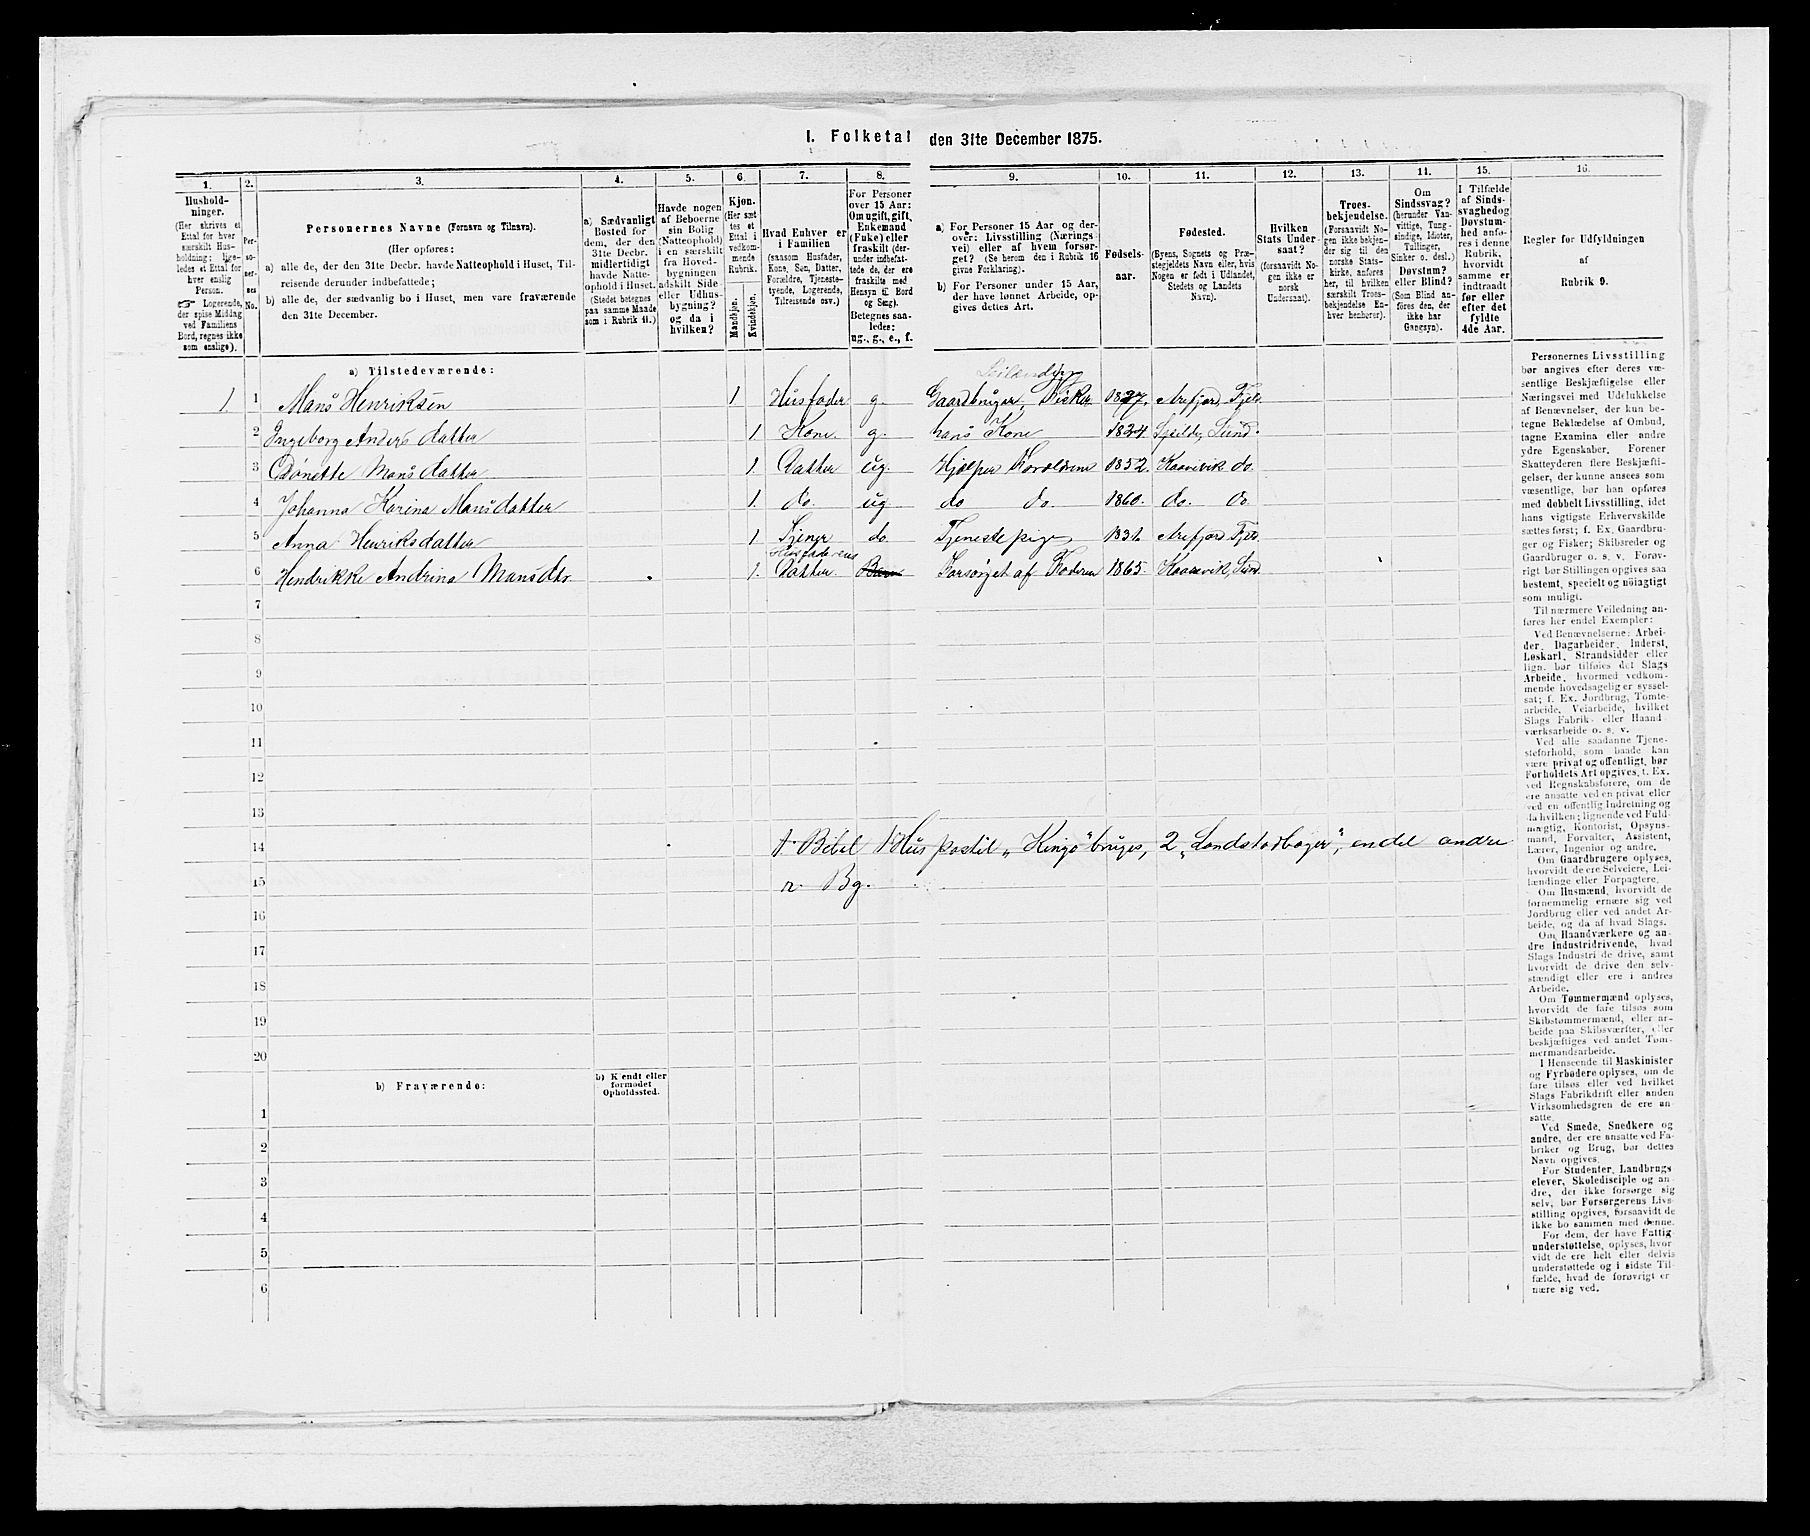 I. Folketal den 31te December 1875.
1. 2. 3. 4. 5. 6. 7. 8. 9. 10. 11. 12. 13. 11. 15. 16.
Husholdninger.
(Her skrives et Ettal for hver særskilt Husholdning; ligeledes et Ettal for hver enslig Person.
☞ Logerende, der spise Middag ved Familiens Bord, regnes ikke som enslige).
Personernes No.
Personernes Navne (Fornavn og Tilnavn).
(Her opføres:
a) alle de, der den 31te Decbr. havde Natteophold i Huset, Tilreisende derunder indbefattede;
b) alle de, der sædvanlig bo i Huset, men vare fraværende den 31te December.
a) Sædvanligt Bosted for dem, der den 31te Decbr. midlertidigt havde Natteophold i Huset.
(Stedet betegnes paa samme Maade som i Rubrik 11.)
Havde nogen af Beboerne sin Bolig (Natteophold) i en særskilt fra Hovedbygningen adskilt Side eller Udhusbygning? og da i hvilken?
Kjøn.
(Her sættes et Ettal i vedkommende Rubrik.
Mandkjøn.
Kvindekjøn.
Hvad Enhver er i Familien
(saasom Husfader, Kone, Søn, Datter, Forældre, Tjenestetyende, Logerende, Tilreisende osv.)
For Personer over 15 Aar: Om ugift, gift, Enkemand (Enke) eller fraskilt (derunder indbefattede de, der ere fraskilte med Hensyn til Bord og Seng). Betegnes saaledes: ug., g., e., f.
a) For Personer 15 Aar og derover: Livsstilling (Næringsvei) eller af hvem forsørget? (Se herom den i Rubrik 16 givne Forklaring).
b) For Personer under 15 Aar, der have lønnet Arbeide, opgives dettes Art.
Fødselsaar.
Fødested.
(Byens, Sognets og Præstegjeldets Navn eller, hvis Nogen er født i Udlandet, Stedets og Landets Navn).
Hvilken Stats Undersaat?
(forsaavidt Nogen ikke er norsk Undersaat).
Troesbekjendelse.
(Forsaavidt Nogen ikke bekjender sig til den norske Statskirke, anføres her, til hvilken særskilt Troesbekjendelse Enhver henhører).
Om Sindssvag? (herunder Vanvittige, Tungsindige, Idioter, Tullinger, Sinker o. desl.) Døvstum? eller Blind? (Som Blind anføres den, der ikke har Gangsyn).
I Tilfælde af Sindssvaghed og Døvstumhed anføres i denne Rubrik, hvorvidt samme er indtraadt før eller efter det fyldte 4de Aar.
Regler for Udfyldningen af Rubrik 9.
a) Tilstedeværende:
Leilending
1 1 Mans Henriksen 1 Husfader g. Gaardbruger, Fisker 1827. Arefjord, Fjel.
2 Ingeborg Anders datter 1. Kone. g. hans Kone 1824 Sund.
3 Mans datter 1. Datter ug. Hjælper Foreldrene 1852. do.
4 Johanna Karina Mans datter 1. do. ug do do. 1860. do. do.
5 Anna Henriksdatter 1 Tjener do. Tjenestepige 1831. Arefjord Fjel.
Husfaderens
6 Hendrikke Andrina Mans dtr. 1. Datter. Barn Forsørget af Faderen 1865. Sund.
7
8
9
10
11
12
13
14 1. Bibel 1 Huspostil „Kingo" bruges, 2 „Landstadbøger", endel andre
15 r. Bg.
16
17
18
19
20
b) Fraværende:
b) Kjendt eller formodet Opholdssted.
1
2
3
4
5
6
Personernes Livsstilling bør angives efter deres væsentlige Beskjæftigelse eller Næringsvei med Udelukkelse af Benævnelser, der kun betegne Beklædelse af Ombud, tagne Examina eller andre ydre Egenskaber. Forener Skatteyderen flere Beskjæftigelser, der kunne ansees som væsentlige, bør han opføres med dobbelt Livsstilling, idet hans vigtigste Erhvervskilde sættes først; f. Ex. Gaardbruger og Fisker; Skibsreder og Gaardbruger o. s. v. Forøvrigt bør Stillingen opgives saa bestemt, specielt og nøiagtigt som muligt.
Til nærmere Veiledning anføres her endel Exempler:
Ved Benævnelserne: Arbeider, Dagarbeider, Inderst, Løskarl, Strandsidder eller lign. bør tilføies det Slags Arbeide, hvormed vedkommende hovedsagelig er sysselsat; f. Ex. Jordbrug, Tomtearbeide, Veiarbeide, hvilket Slags Fabrik- eller Haandværksarbeide o. s. v.
Ved alle saadanne Tjenesteforhold, som baade kan være privat og offentligt, bør Forholdets Art opgives, t. Ex. ved Regnskabsførere, om de ere ansatte ved en privat eller ved en offentlig Indretning og da hvilken; lignende ved Fuldmægtig, Kontorist, Opsynsmand, Forvalter, Assistent, Lærer, Ingeniør og andre.
Om Gaardbrugere oplyses, hvorvidt de ere Selveiere, Leilændinge eller Forpagtere.
Om Husmænd, hvorvidt de fornemmelig ernære sig ved Jordbrug eller ved andet Arbeide, og da af hvad Slags.
Om Haandværkere og andre Industridrivende, hvad Slags Industri de drive, samt hvorvidt de drive den selvstændigt eller ere i andres Arbeide.
Om Tømmermænd oplyses, hvorvidt de fare tilsøs som Skibstømmermænd, eller arbeide paa Skibsværfter, eller beskjæftiges ved andet Tømmermandsarbeide.
I Henseende til Maskinister og Fyrbødere oplyses, om de fare tilsøs eller ved hvilket Slags Fabrikdrift eller anden Virksomhedsgren de ere ansatte.
Ved Smede, Snedkere og andre, der ere ansatte ved Fabriker og Brug, bør dettes Navn opgives.
For Studenter, Landbrugselever, Skoledisciple og andre, der ikke forsørge sig selv, bør Forsørgerens Livsstilling opgives, forsaavidt de ikke bo sammen med denne.
For dem, der have Fattigunderstøttelse, oplyses, hvorvidt de ere helt eller delvis understøttede og i sidste Tilfælde, hvad de forøvrigt ernære sig ved.